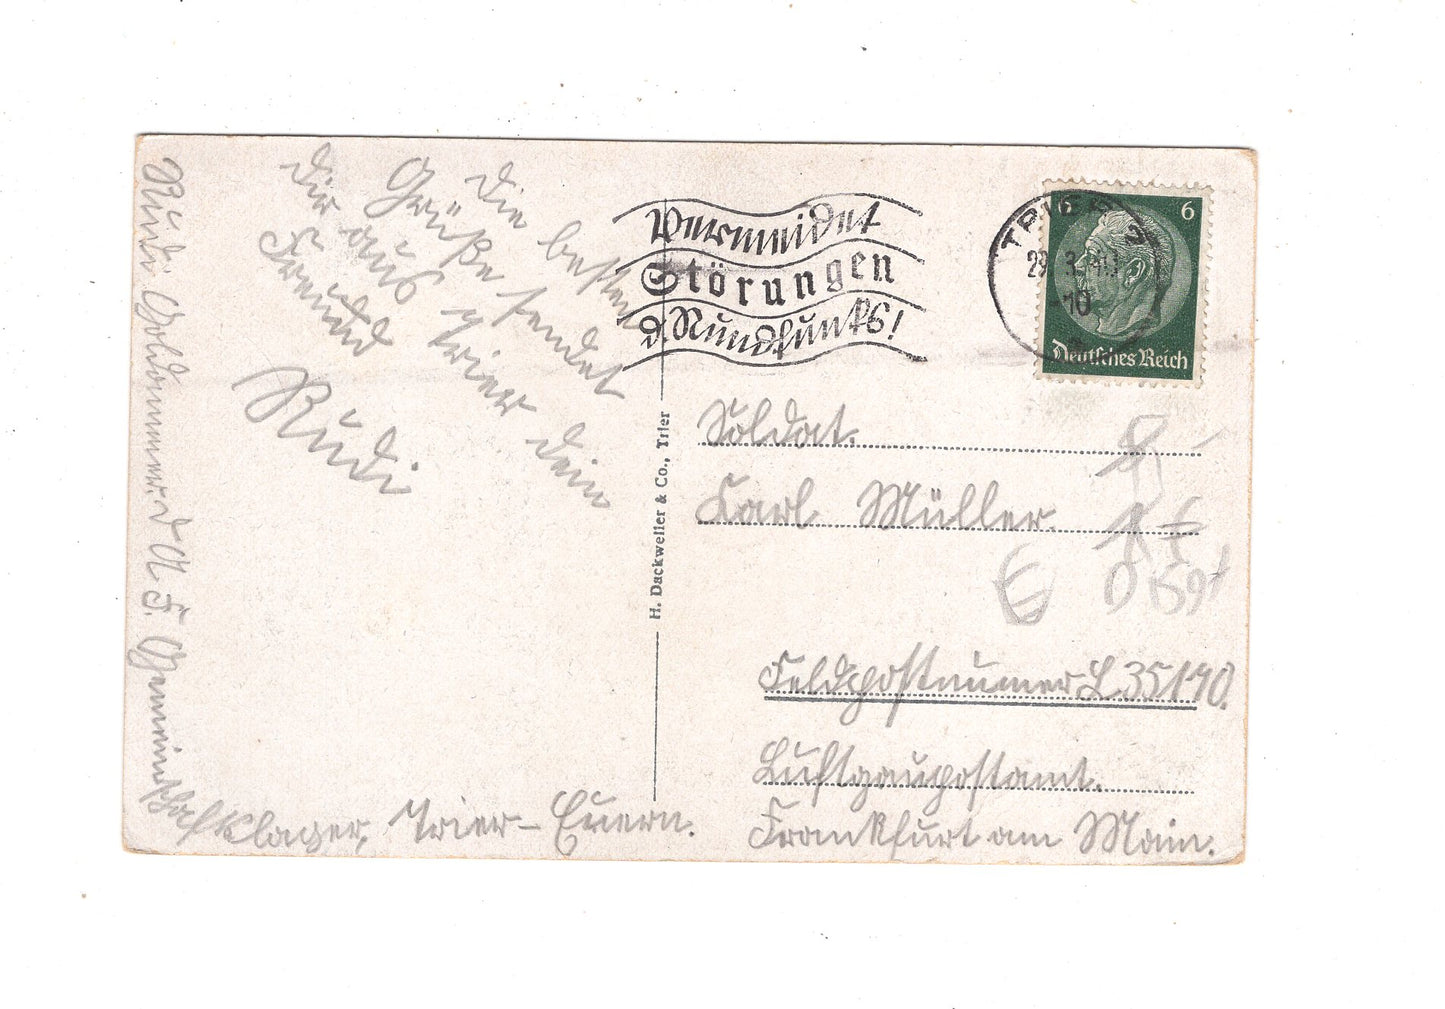 Die besten
Grüße sendet
dir aus Trier dein
Freund
Rudi
Rudi
D. A. F. Gemeinschaftslager, Trier-Euern.
H. Dackweiler & Co., Trier
Vermeidet
Störungen
d. Rundfunks!
TRIER 2
29.3.
-10
6 6
Deutsches Reich
Soldat.
Karl Müller.
Feldpostnummer L 35190.
Luftgaupostamt.
Frankfurt am Main.